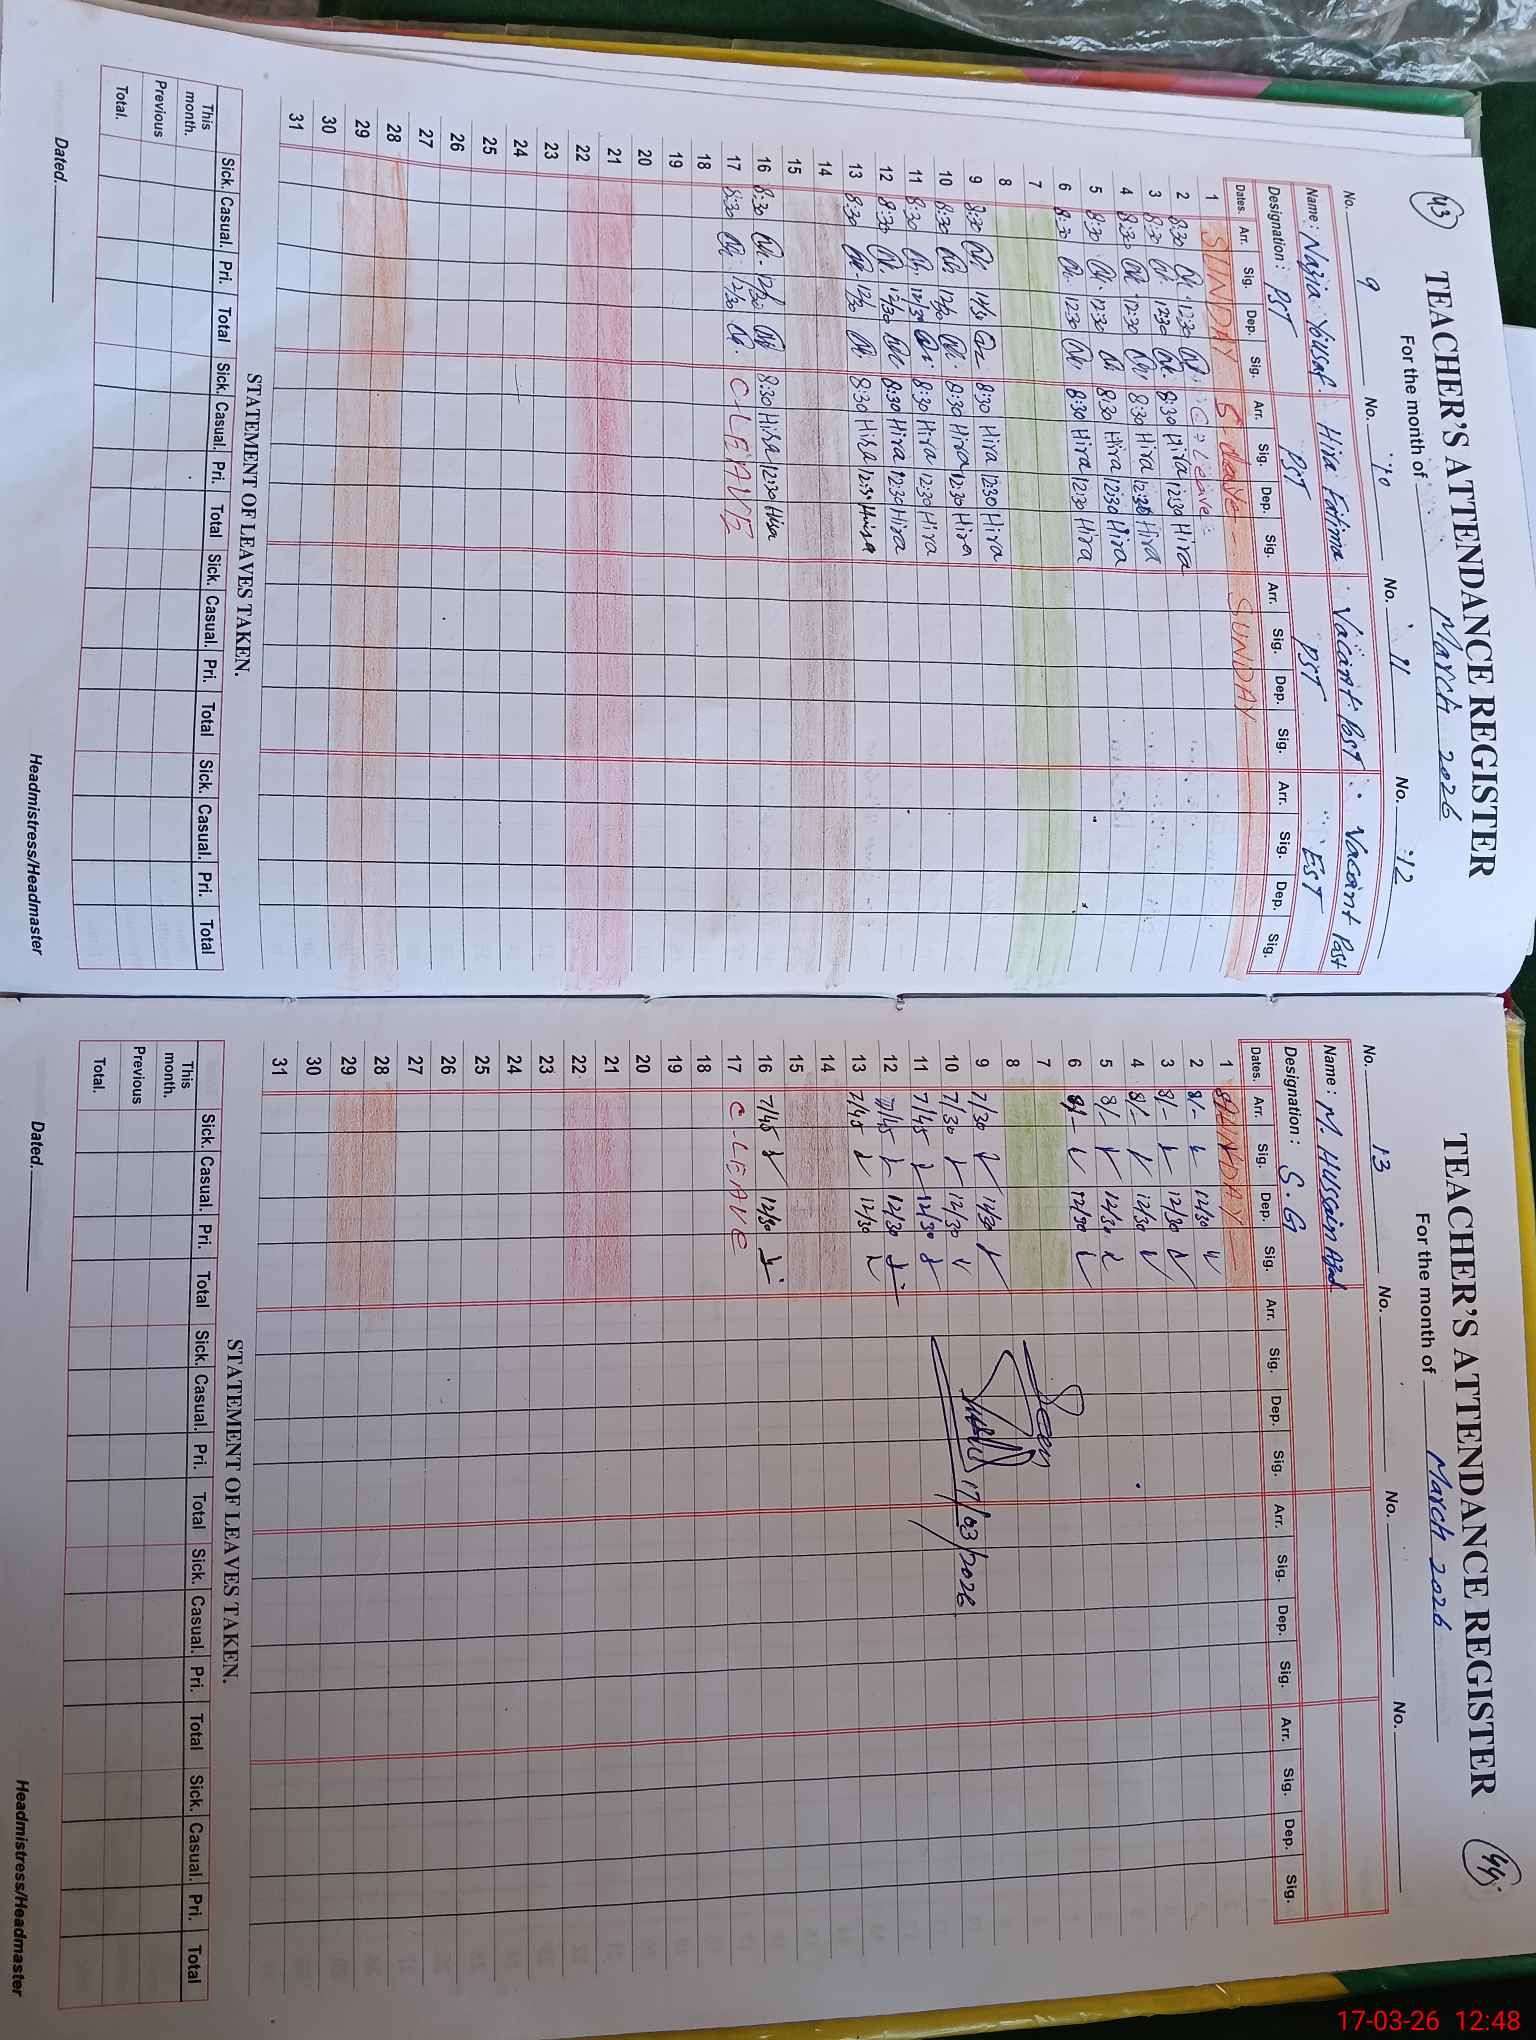 43
TEACHER'S ATTENDANCE REGISTER
For the month of March 2026
No. 9 No. 10 No. 11 No. 12
Name: Nazia Yousaf. Hira Fatima Vacant Post Vacant Post
Designation: PST PST PST EST
Dates. Arr. Sig. Dep. Sig. Arr. Sig. Dep. Sig. Arr. Sig. Dep. Sig. Arr. Sig. Dep. Sig.
1 SUNDAY SUNDAY
2 8:30 12:30 C-Leave
3 8:30 12:30 8:30 Hira 12:30 Hira
4 8:30 12:30 8:30 Hira 12:30 Hira
5 8:30 12:30 8:30 Hira 12:30 Hira
6 8:30 12:30 8:30 Hira 12:30 Hira
7
8
9 8:30 8:30 Hira 12:30 Hira
10 8:30 12/30 8:30 Hira 12:30 Hira
11 8:30 12/30 8:30 Hira 12:30 Hira
12 8:30 12/30 8:30 Hira 12:30 Hira
13 8:30 12/30 8:30 Hira 12:30 Hira
14
15
16 8:30 12/30 8:30 Hira 12:30 Hira
17 8:30 12/30 C-LEAVE
18
19
20
21
22
23
24
25
26
27
28
29
30
31
STATEMENT OF LEAVES TAKEN.
Sick. Casual. Pri. Total Sick. Casual. Pri. Total Sick. Casual. Pri. Total Sick. Casual. Pri. Total
This month.
Previous
Total.
Dated. Headmistress/Headmaster
TEACHER'S ATTENDANCE REGISTER
44
For the month of March 2026
No. 13 No. No. No.
Name: M. Hussain Azad
Designation: S.G
Dates. Arr. Sig. Dep. Sig. Arr. Sig. Dep. Sig. Arr. Sig. Dep. Sig. Arr. Sig. Dep. Sig.
1 SUNDAY
2 8/- 12/30
3 8/- 12/30
4 8/- 12/30
5 8/- 12/30
6 8/- 12/30
7 Seen
8
9 7/30 17/03/2026
10 7/30 12/30
11 7/45 12/30
12 7/45 12/30
13 7/45 12/30
14
15
16 7/45 12/30
17 C-LEAVE
18
19
20
21
22
23
24
25
26
27
28
29
30
31
STATEMENT OF LEAVES TAKEN.
Sick. Casual. Pri. Total Sick. Casual. Pri. Total Sick. Casual. Pri. Total Sick. Casual. Pri. Total
This month.
Previous
Total.
Dated. Headmistress/Headmaster
17-03-26 12:48